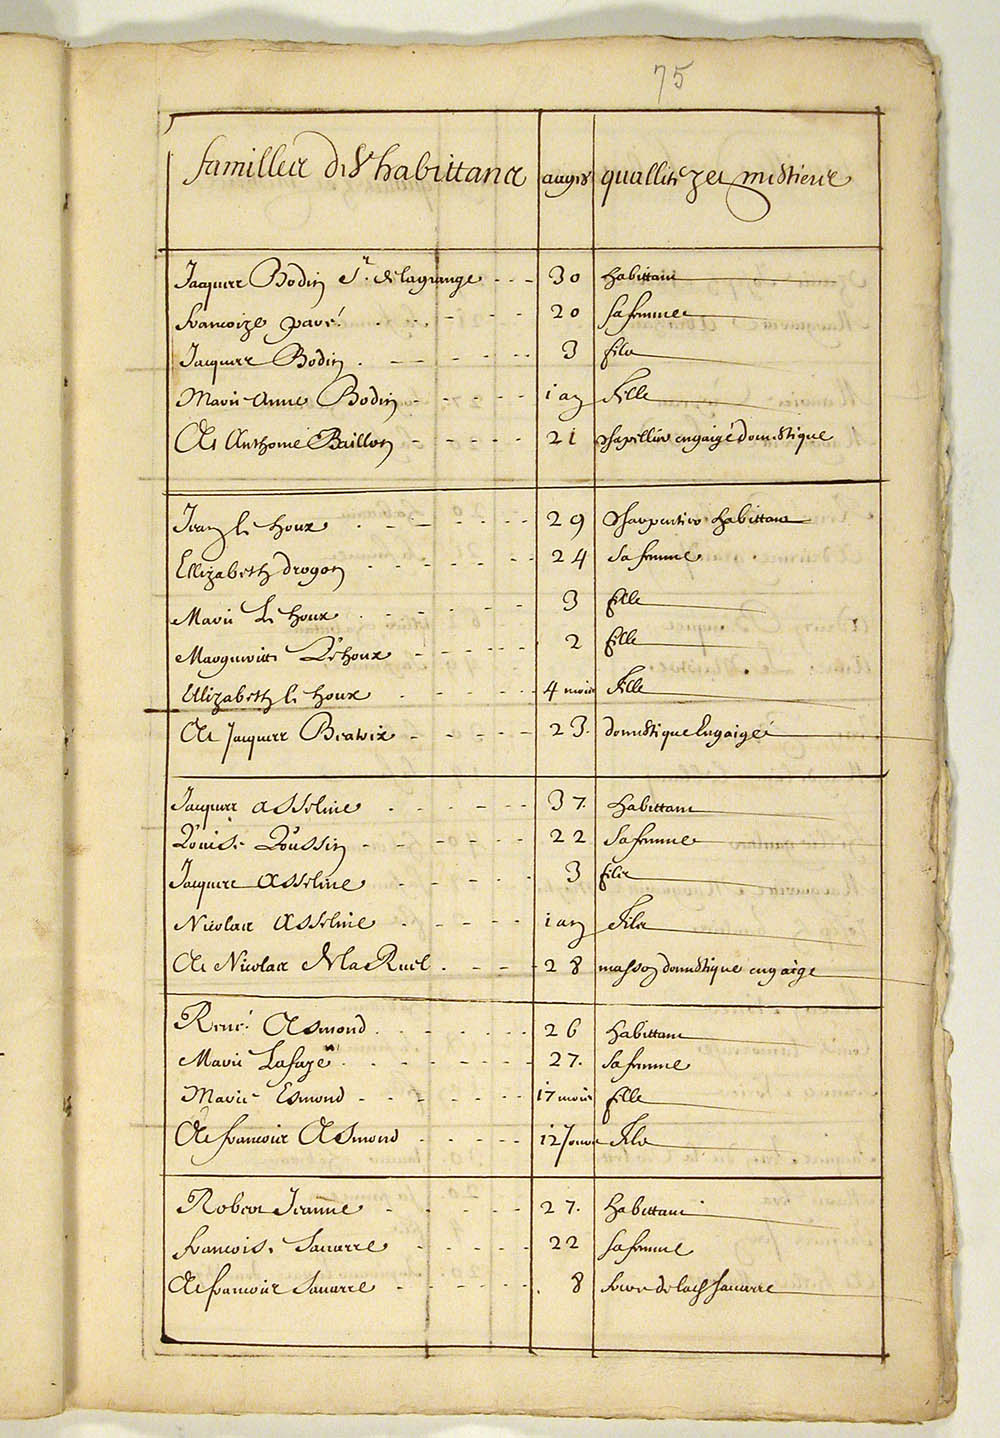 75
familles des habittans aages quallites et mestiers
Jacques Bodin Sr. de lagrange 30 habittant
francoize pavé 20 sa femme
Jacques Bodin 3 fils
Marie Anne Bodin i an fille
Et Anthoine Baillon 2i Chapellier engaigé domestique
Jean le houx 29 Charpentier habittant
Ellizabeth drogon 24 sa femme
Marie Le houx 3 fille
Margueritte Le houx 2 fille
Ellizabeth le houx 4 mois fille
Et Jacques Beatrix 23. domestique Engaigé
Jacques asseline 37. habittant
Louise Loussin 22 sa femme
Jacques asseline 3 fils
Nicolas asseline i an fils
Et Nicolas de la Ruel 28 masson domestique engaige
René Esmond 26 habittant
Marie Lafaye 27. sa femme
Marie Esmond i7 mois fille
Et francois Esmond i2 Jours fils
Robert Jeanne 27. habittant
francoise Sauarre 22 sa femme
Et francoise Sauarre 8 soeur de lad Sauarre